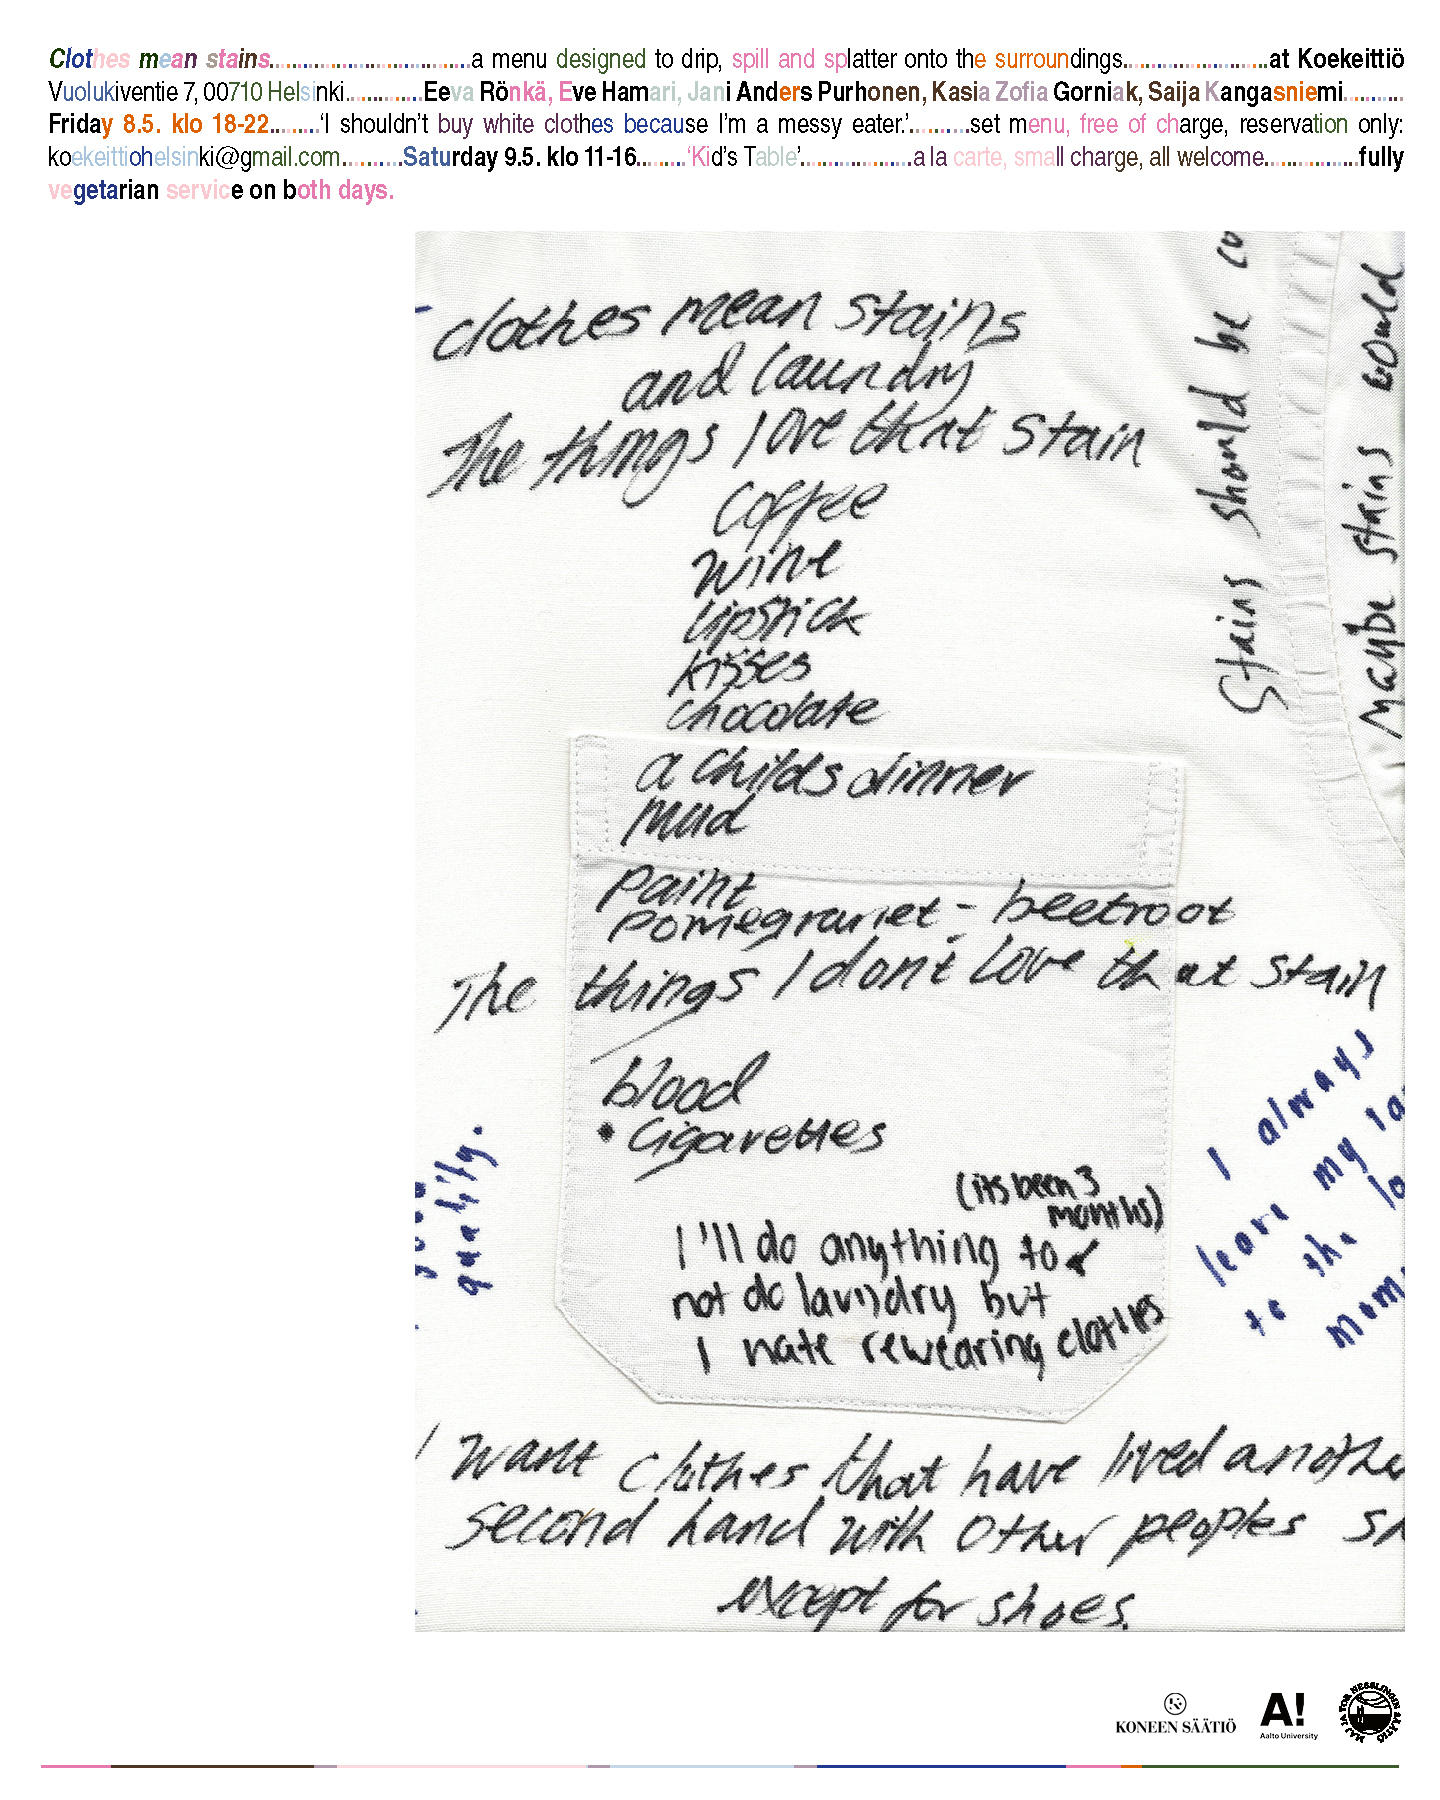 Clothes mean stains.......................................a menu designed to drip, spill and splatter onto the surroundings............................at Koekeittiö
Vuolukiventie 7, 00710 Helsinki...............Eeva Rönkä, Eve Hamari, Jani Anders Purhonen, Kasia Zofia Gorniak, Saija Kangasniemi............
Friday 8.5. klo 18-22..........‘I shouldn’t buy white clothes because I’m a messy eater.’............set menu, free of charge, reservation only:
koekeittiohelsinki@gmail.com............Saturday 9.5. klo 11-16..........‘Kid’s Table’......................a la carte, small charge, all welcome...................fully
vegetarian service on both days.
clothes mean stains
and laundry
The things I love that stain
coffee
wine
lipstick
kisses
chocolate
a childs dinner
mud
paint
pomegranet - beetroot
The things I dont love that stain
blood
• Cigarettes
(its been 3
months)
I'll do anything to
not do laundry but
I hate rewearing clothes
I want clothes that have lived another
second hand with other peoples
except for shoes.
Stains should be
Maybe stains could
quality.
I always
leave my
to the
KONEEN SÄÄTIÖ
A!
Aalto University
MAIJ FOR NESSLINGIN SÄÄTIÖ